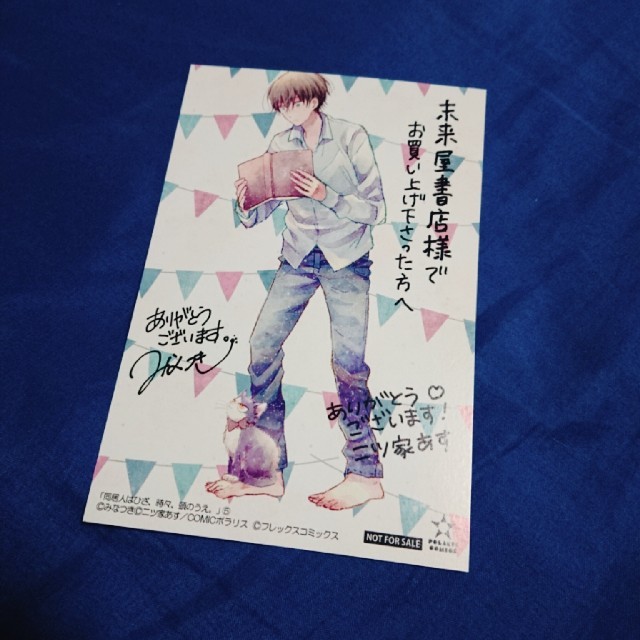 未来屋書店様で
お買い上げ下さった方へ
ありがとう
ございます。
みなつき
ありがとう♡
ございます!
二ツ家あす
「同居人はひざ、時々、頭のうえ。」5
©みなつき©二ツ家あす/COMICポラリス ©フレックスコミックス
NOT FOR SALE